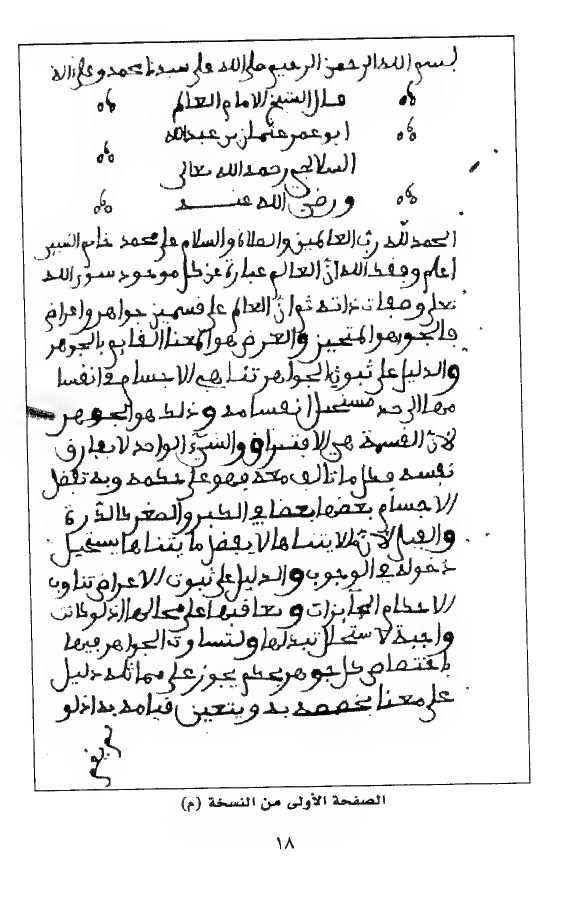 بسم الله الرحمن الرحيم صلى الله على سيدنا محمد وعلى اله
قال الشيخ الامام العالم
ابو عمر عثمان بن عبد الله
السلالجي رحمه الله تعالى
ورضي الله عنه
الحمد لله رب العالمين والصلاة والسلام على محمد خاتم النبيين
اعلم وفقك الله ان العالم عبارة عن كل موجود سوى الله
تعلى وصفات ذاته ثم ان العالم على قسمين جواهر واعراض
فالجوهر هو المتحيز والعرض هو المعنا القايم بالجوهر
والدليل على ثبوت الجواهر تناهي الاجسام في انفسا
مها الى حد يستحيل انقسامه وذلك هو الجوهر
لان القسمة هي الافتراق والشيء الواحد لا يفارق
نفسه فكل ما تالف معه فهو على حكمه وبه تفضل
الاجسام بعضها بعضا في الكبر والصغر كالذرة
والفيل لان ما لا يتناها لا يفضل ما يتناها يستحيل
دخوله في الوجوب والدليل على ثبوت الاعراض تناوب
الاحكام الجايزات وتعاقبها على محالها اذ لو كانت
واجبة لاستحال تبدلها ولتساوت الجواهر فيها
باختصاص كل جوهر بحكم يجوز على مماثله دليل
على معنا يخصصه به ويتعين قيامه به اذ لو
لم يقم
الصفحة الأولى من النسخة (م)
١٨